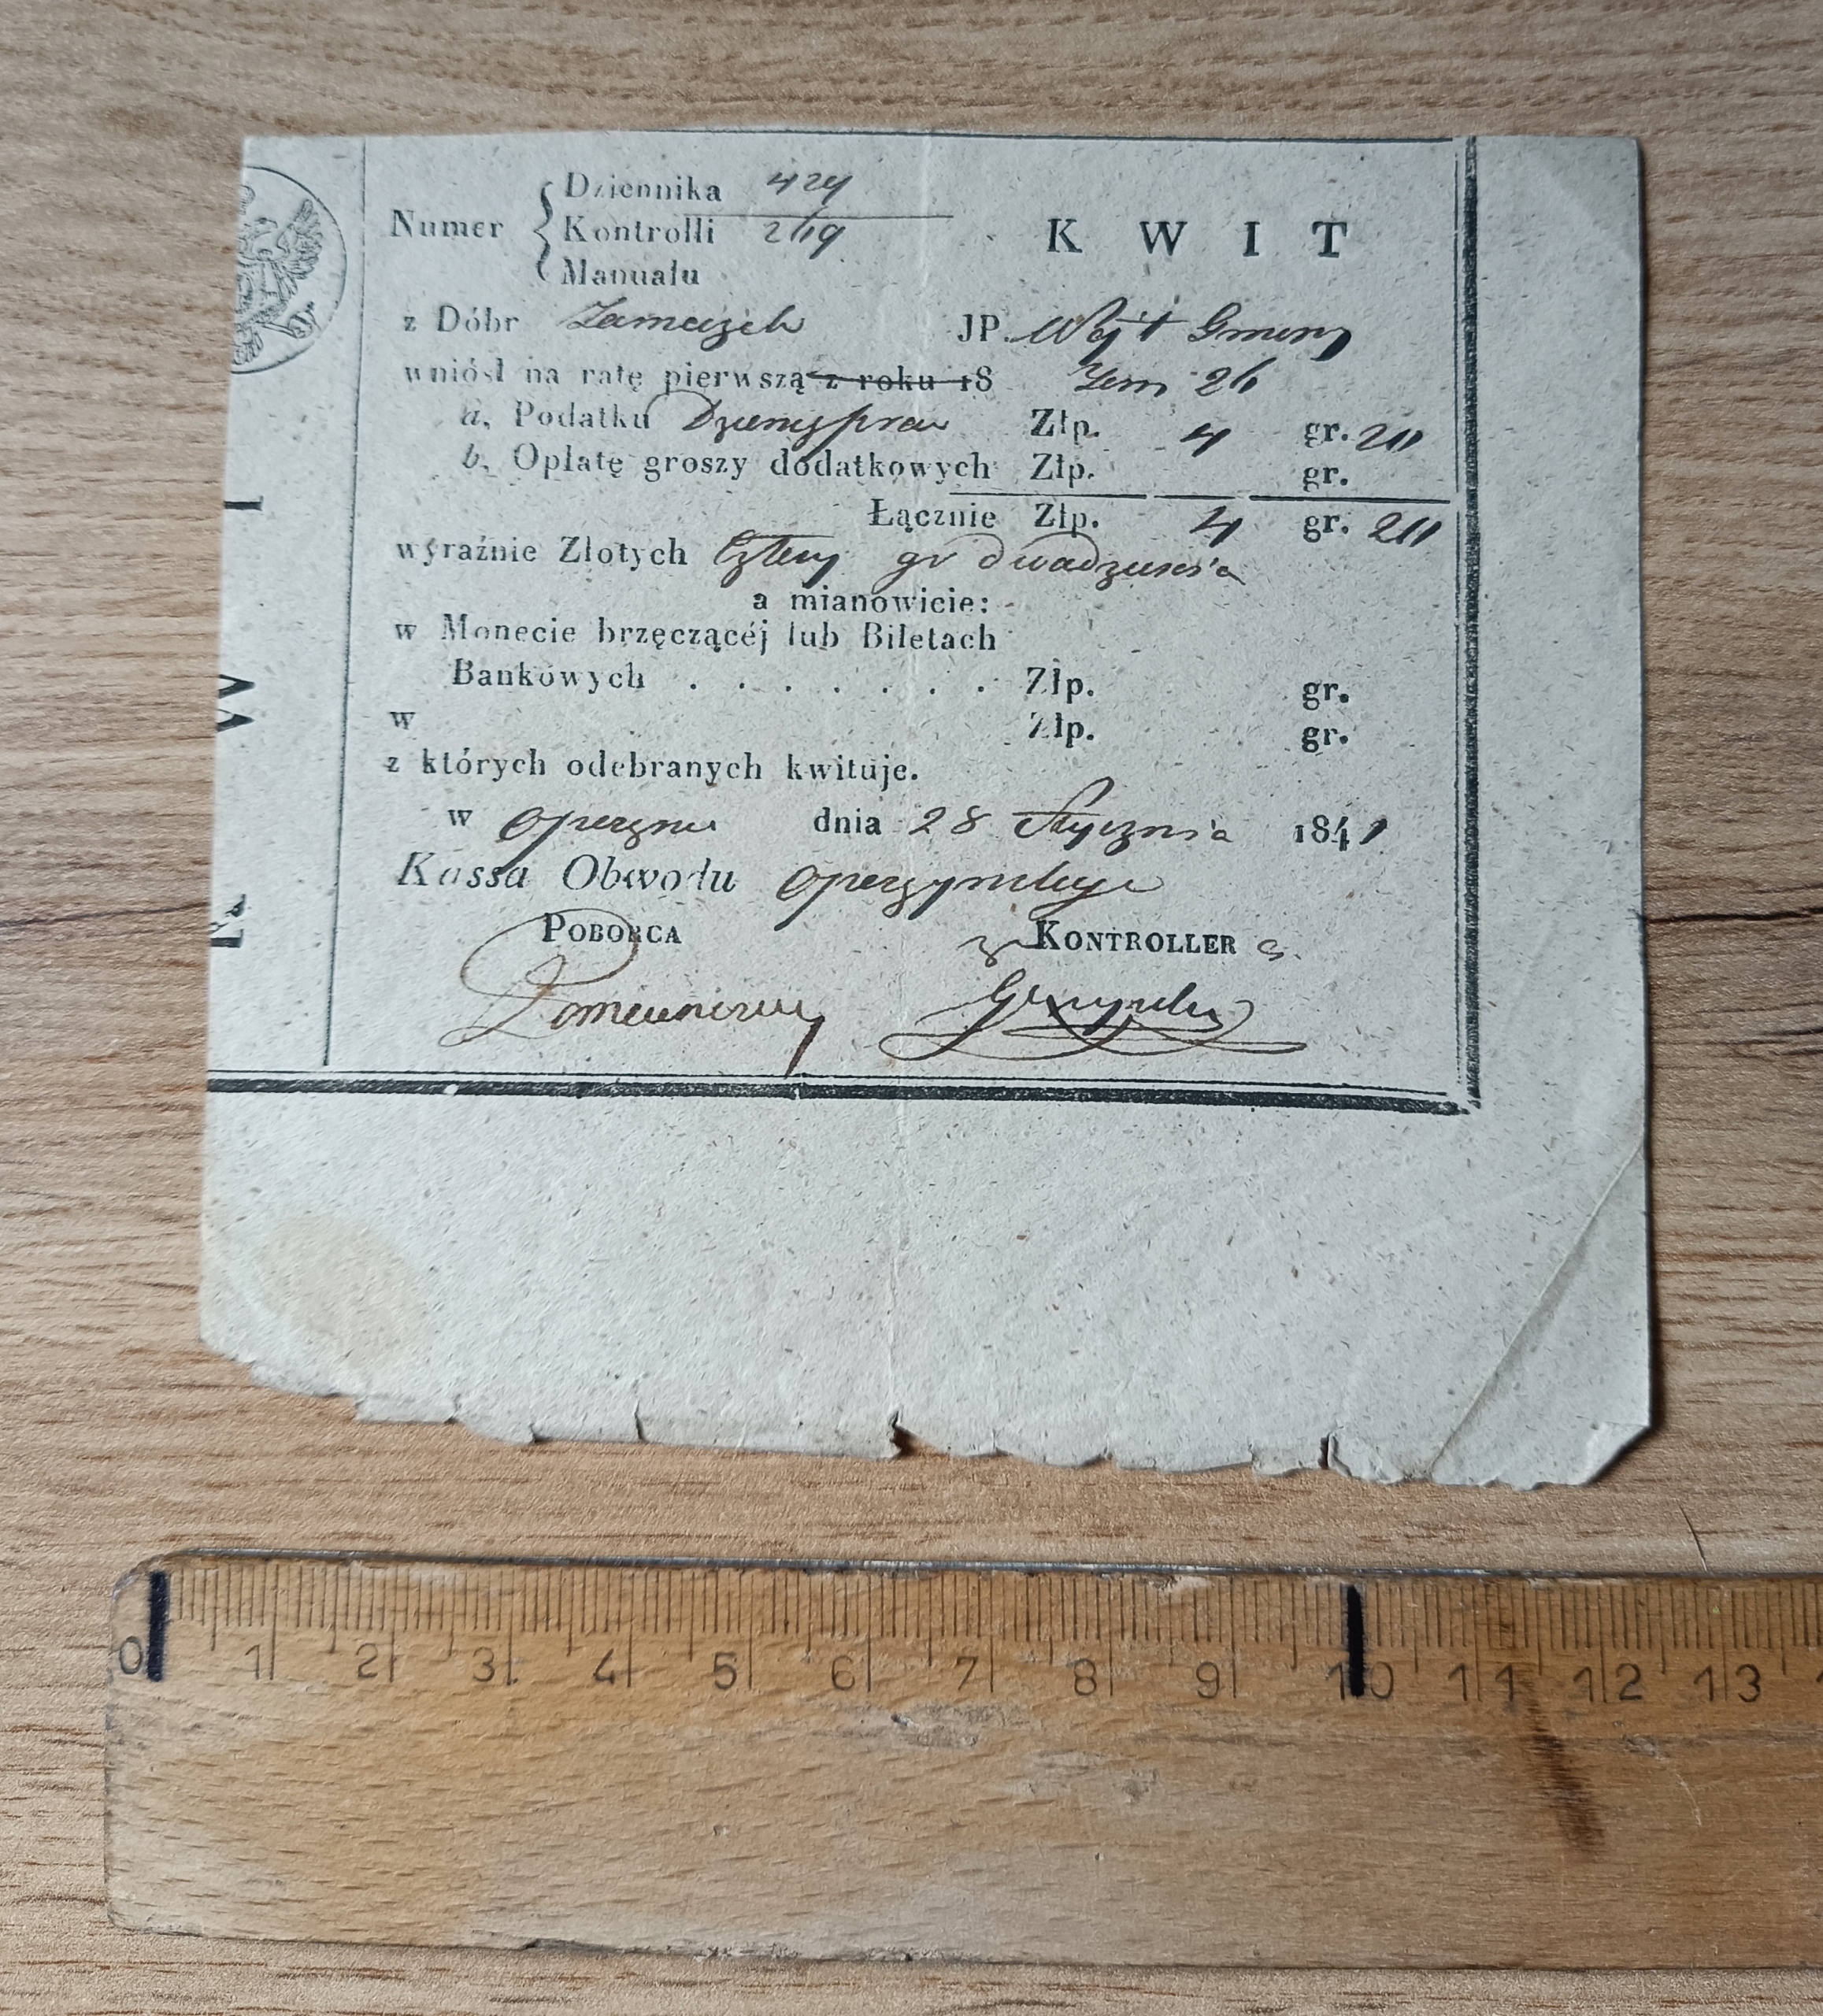 Numer { Dziennika 424
Kontrolli 2619
Manuału
K W I T
z Dóbr JP. Wójt Gminy
wniósł na ratę pierwszą z roku 18
a, Podatku Złp. 4 gr. 20
b, Opłatę groszy dodatkowych Złp. gr.
Łącznie Złp. 4 gr. 20
wyraźnie Złotych Cztery gr dwadzieścia
a mianowicie:
w Monecie brzęczącéj lub Biletach
Bankowych . . . . . . . Złp. gr.
w Złp. gr.
z których odebranych kwituje.
w Opocznie dnia 28 Stycznia 1841
Kassa Obwodu Opoczyńskiego
POBORCA KONTROLLER
K W I
0 1 2 3 4 5 6 7 8 9 10 11 12 13